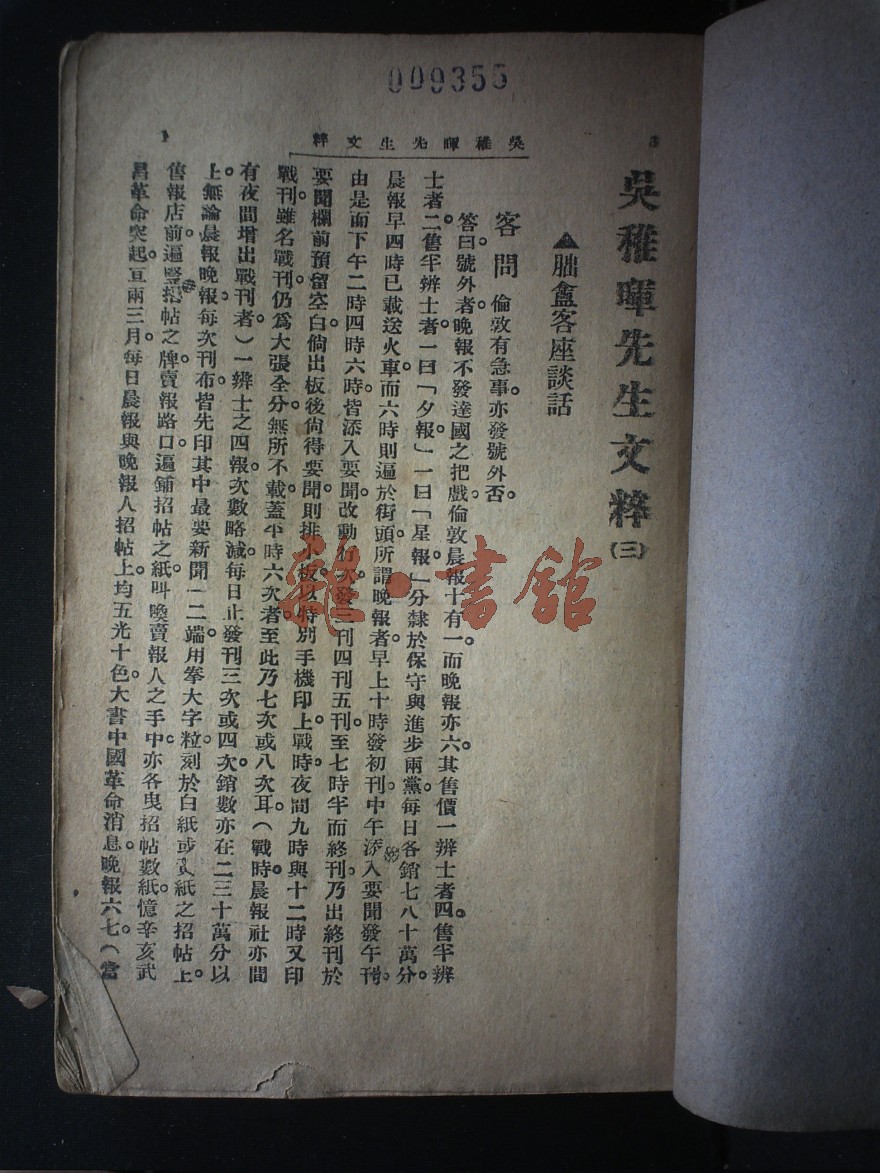 009355
吳稚暉先生文粹
1
吳稚暉先生文粹(三)
▲朏盦客座談話
客問 倫敦有急事。亦發號外否。
答曰。號外者。晚報不發達國之把戲。倫敦晨報十有一。而晚報亦六。其售價一辨士者四。售半辨
士者二。售半辨士者。一曰「夕報」一曰「星報」分隸於保守與進步兩黨。每日各銷七八十萬分。
晨報早四時已載送火車。而六時則遍於街頭。所謂晚報者。早上十時發初刊。中午添入要聞發午刊。
由是而下午二時四時六時。皆添入要聞。改動行次。發三刊四刊五刊。至七時半而終刊。乃出終刊於
要聞欄前預留空白。倘出板後尙得要聞。則排小板。以特別手機印上。戰時。夜間九時與十二時。又印
戰刊。雖名戰刊。仍爲大張全分。無所不載。蓋平時六次者。至此乃七次或八次耳。(戰時。晨報社亦間
有夜間增出戰刊者。)一辨士之四報。次數略減。每日止發刊三次或四次。銷數亦在二三十萬分以
上。無論晨報晚報。每次刊布。皆先印其中最要新聞一二端。用拳大字粒。刻於白紙或黃紙之招帖上。
售報店前。遍豎招帖之牌。賣報路口。遍鋪招帖之紙。叫喚賣報人之手中。亦各曳招帖數紙。憶辛亥武
昌革命突起。亘兩三月。每日晨報與晚報人招帖上。均五光十色。大書中國革命消息。晚報六七。(當
雜·書館